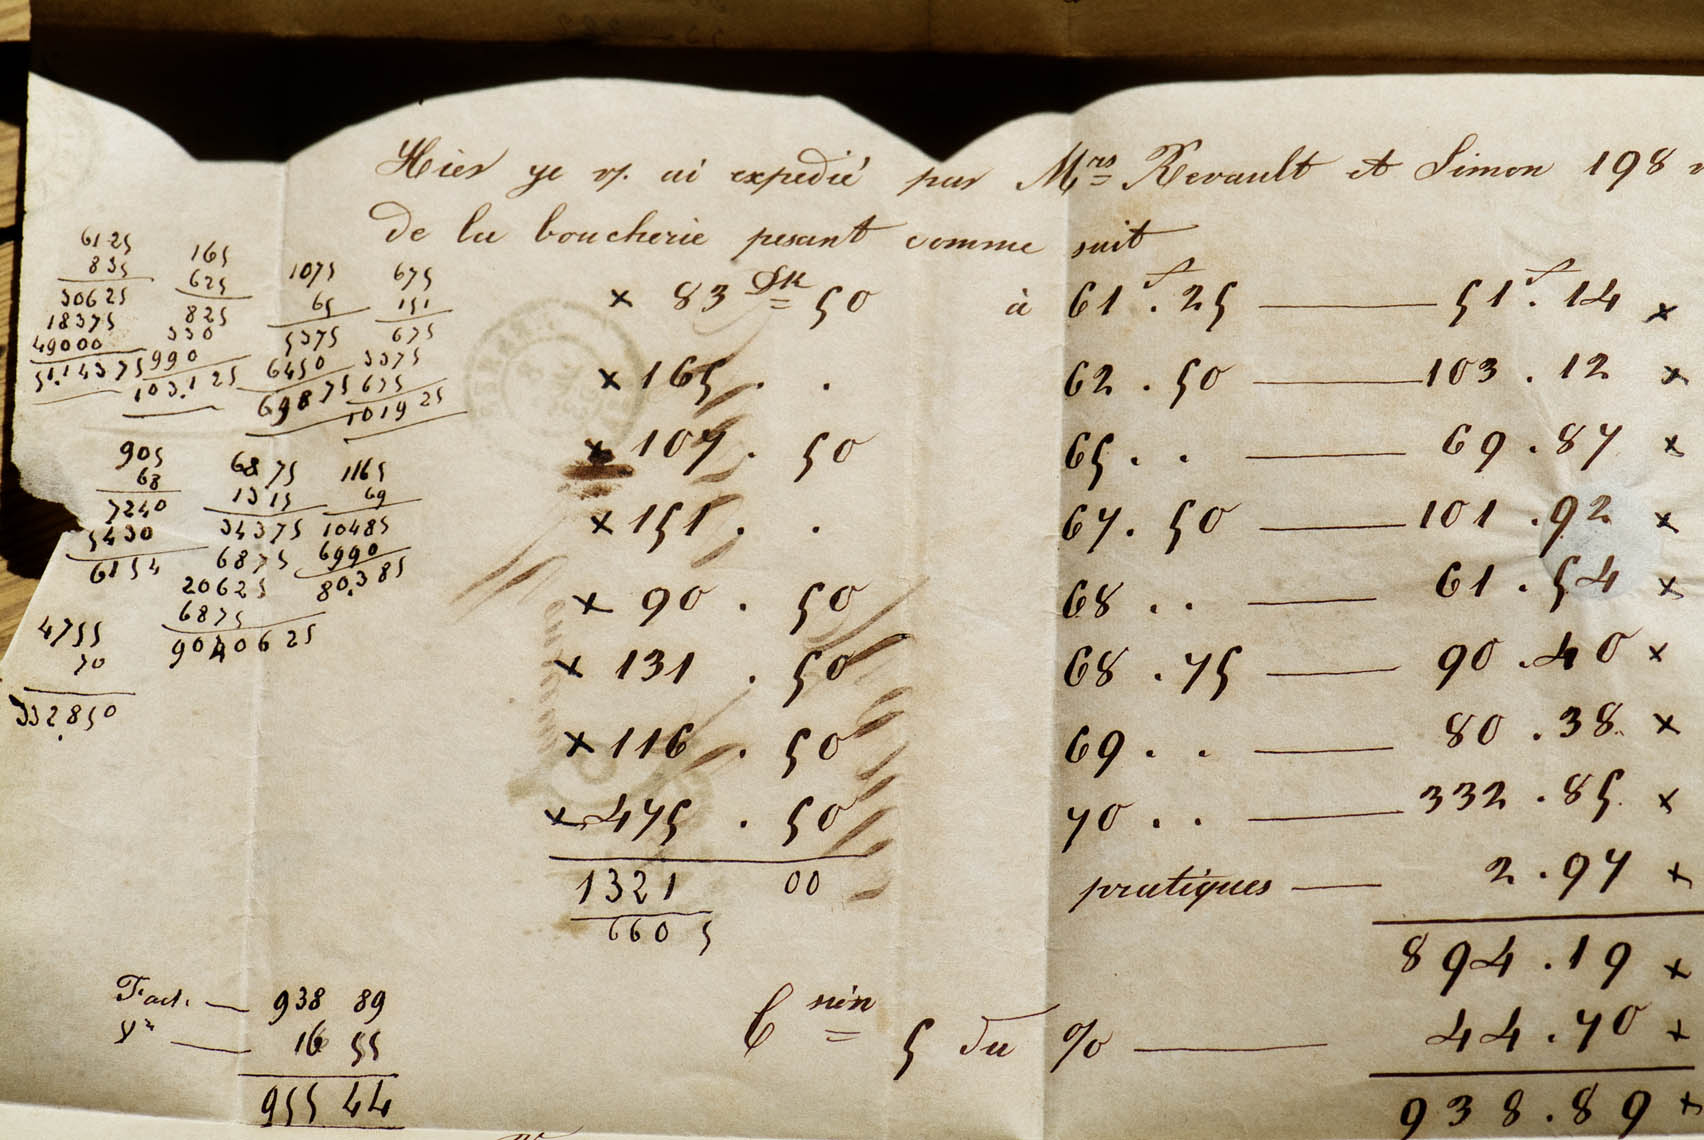 Hier je vs. ai expedié par Mrs Revault et Simon 198
de la boucherie pesant comme suit
× 83 Dk 50 à 61 f. 25 — 51 f. 14 ×
× 165 . . 62 . 50 — 103 . 12 ×
× 107 . 50 65 . . — 69 . 87 ×
× 151 . . 67 . 50 — 101 . 92 ×
× 90 . 50 68 . . — 61 . 54 ×
× 131 . 50 68 . 75 — 90 . 40 ×
× 116 . 50 69 . . — 80 . 38 ×
× 475 . 50 70 . . — 332 . 85 ×
1321 00 pratiques — 2 . 97 ×
660 5
894 . 19 ×
5 du % — 44 . 70 ×
938 . 89 ×
6125
835
30625
18375
49000
51.14375
165
625
825
330
990
103.125
1075
65
5375
6450
69875
675
151
675
3375
675
101925
905
68
7240
5430
6154
6875
1315
34375
6875
20625
6875
9040625
1165
69
10485
6990
80.385
4755
70
332.850
Fact. — 938 89
— 16 55
955 44